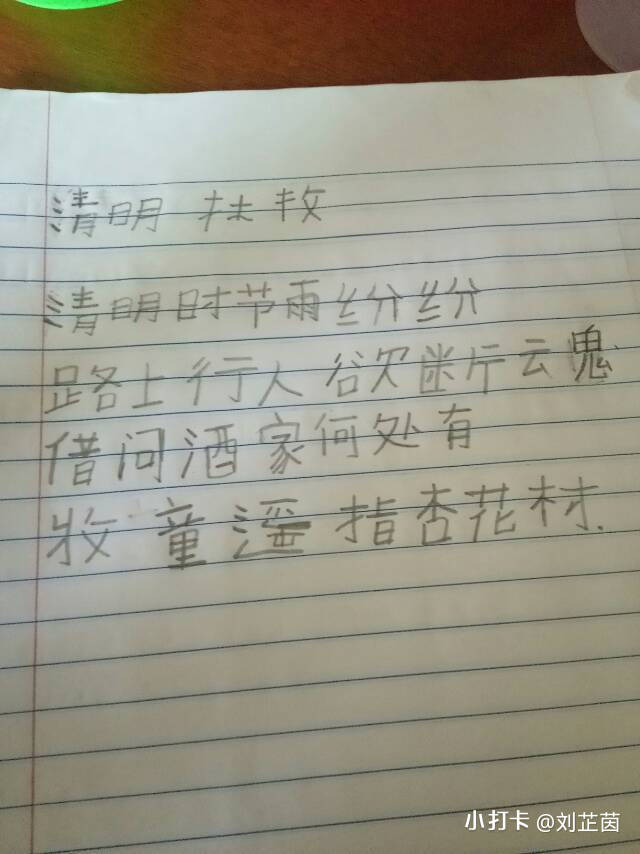 清明 杜牧
清明时节雨纷纷
路上行人欲断云鬼
借问酒家何处有
牧童遥指杏花村.
小打卡 @刘芷茵